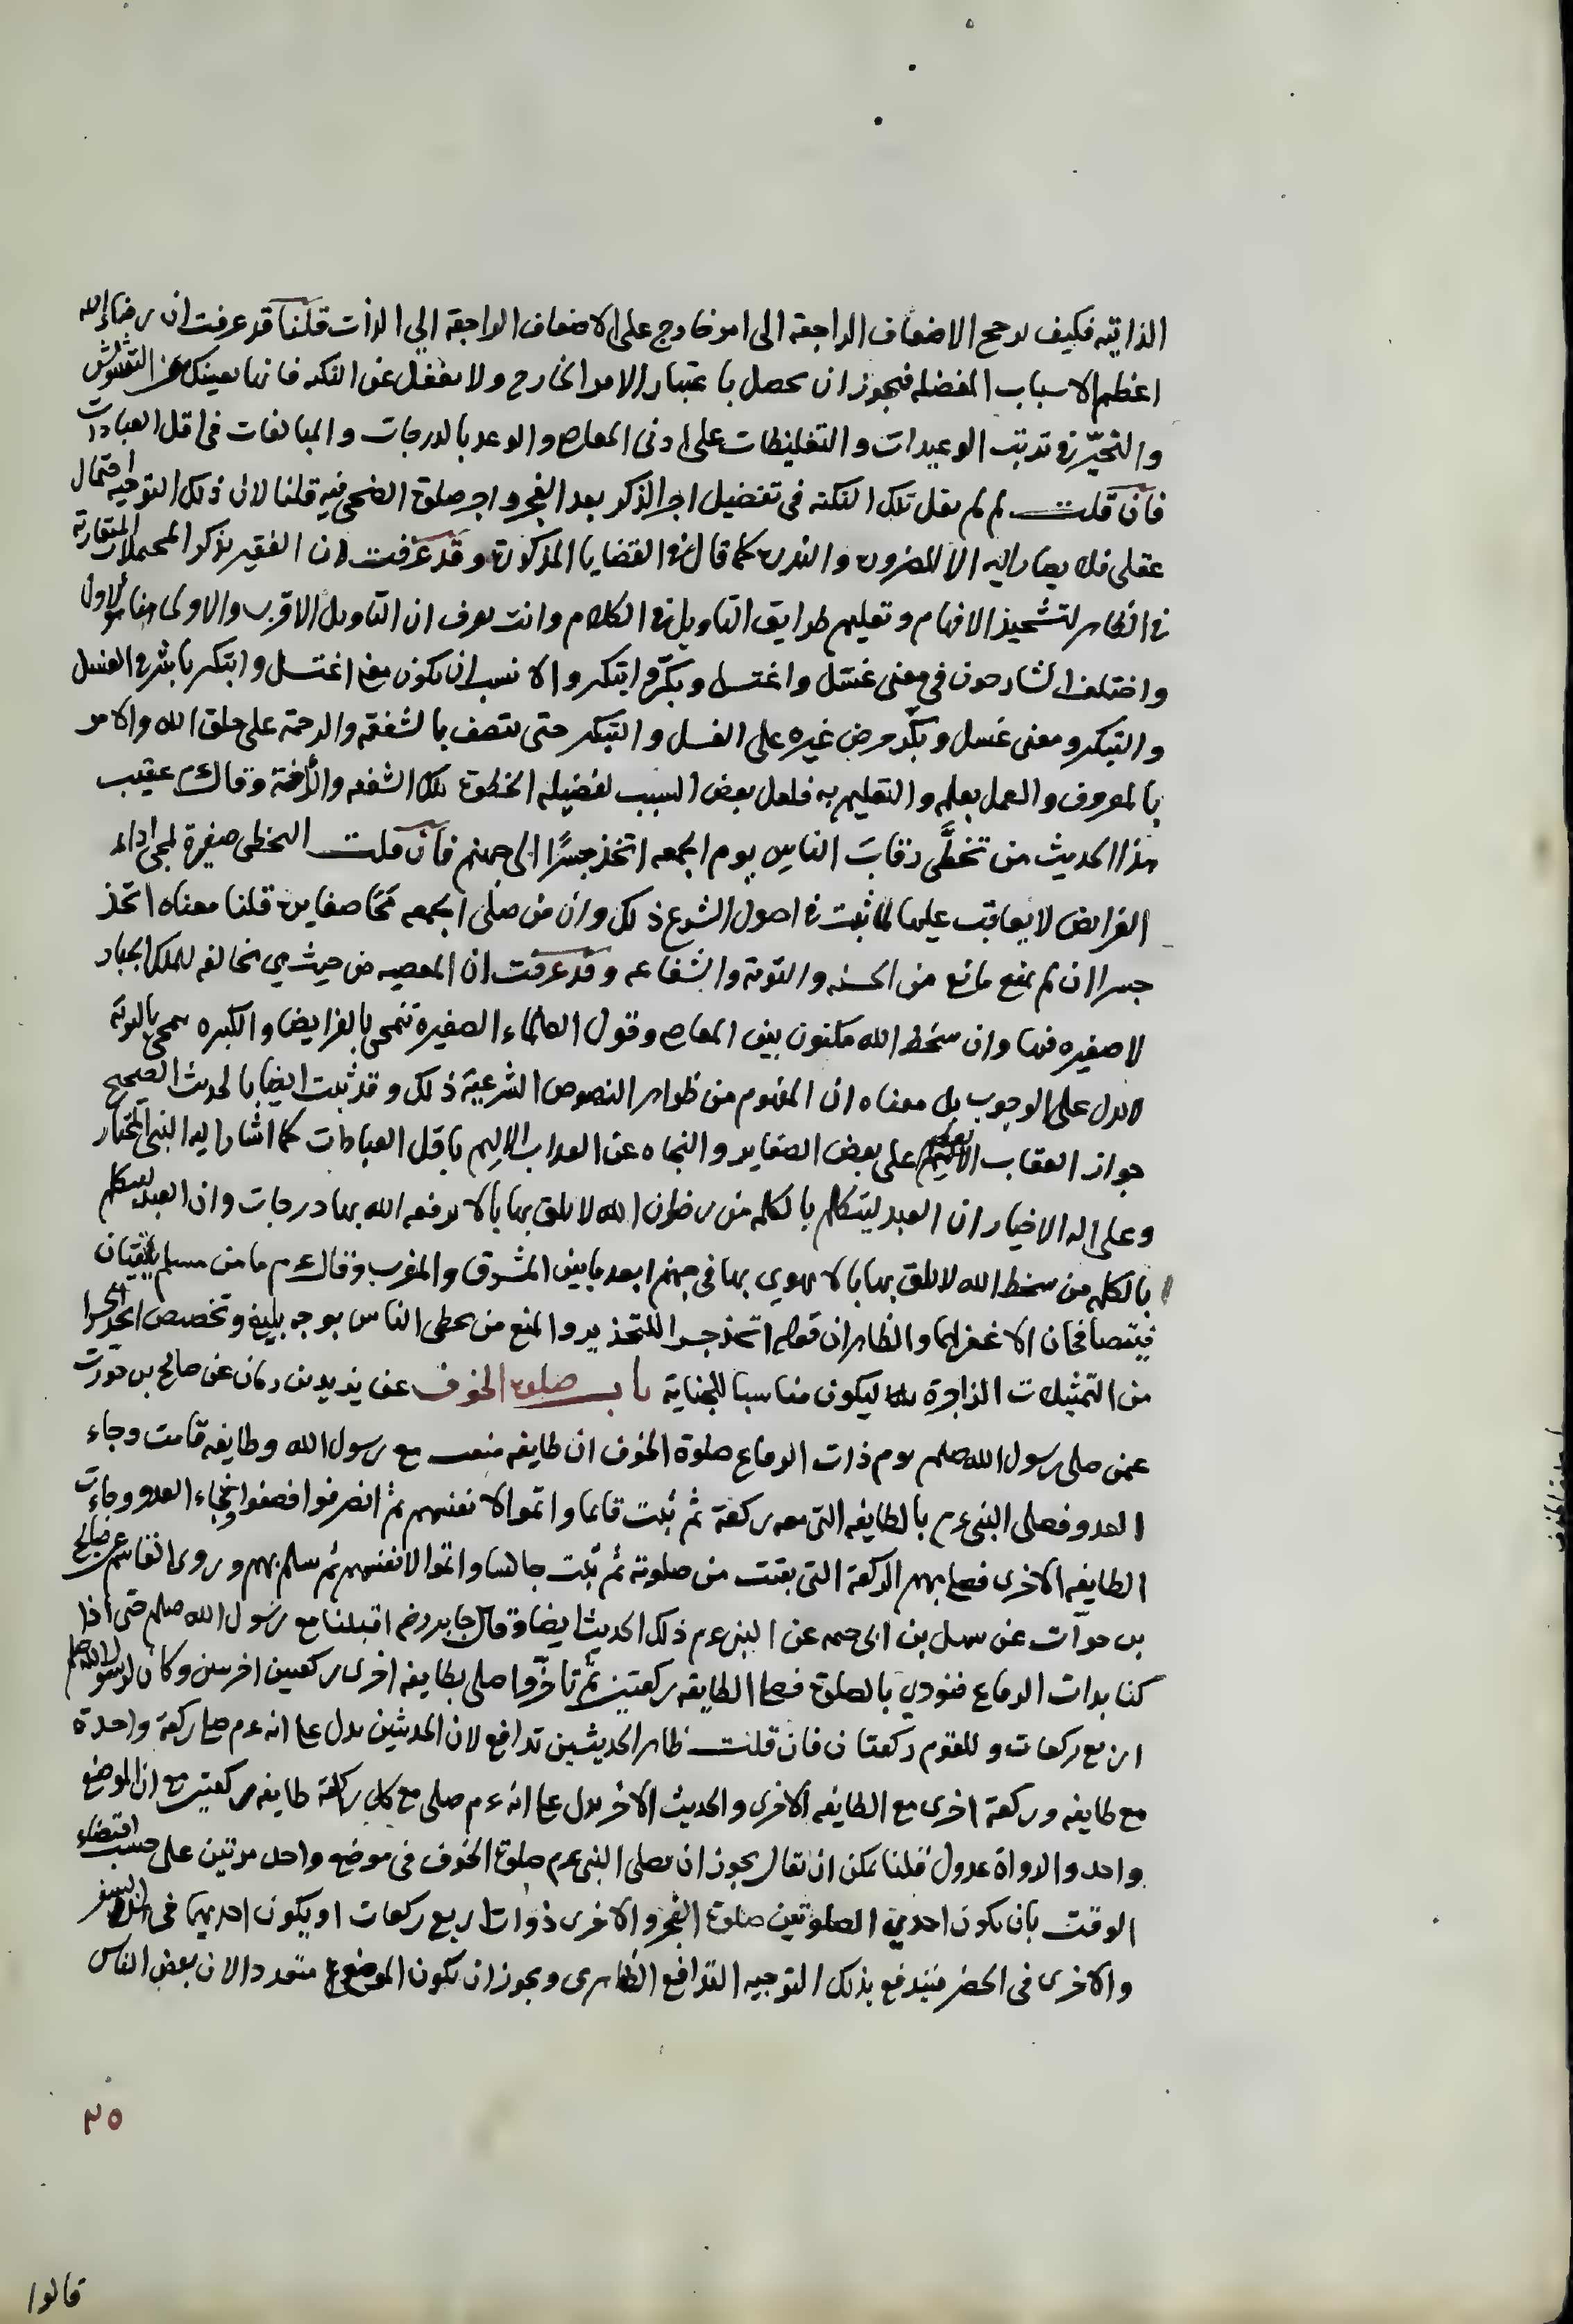 الذاتيه فكيف يرجح الاضعاف الراجعة الى امر خارج على الاضعاف الراجعة الي الذات قلنا قد عرفت ان رضاء الله
اعظم الاسباب المفضله فيجوز ان يحصل باعتبار الامر الخارج ولا يغفل عن النكته فانها يعينك عن التشويش
والتحيّر في ترتب الوعيدات والتغليظات على ادنى المعاصى والوعد بالدرجات والمبالغات في اقل العبادات
فان قلت لم لم يقل تلك النكته في تفضيل اجر الذكر بعد الفجر واجر صلوة الضحى فيه قلنا لان ذلك التوجيه احتمال
عقلى فلا يصار اليه الا للضرورة والندرة كما قال في القضايا المذكورة وقد عرفت ان الفقير يذكر المحتملات المتقاربة
في الظاهر لتشحيذ الافهام وتعليم طرايق التاويل في الكلام وانت تعرف ان التاويل الاقرب والاولى هنا هو الاول
واختلف الشارحون في معنى غسّل واغتسل وبكّر وابتكر والانسب ان يكون معنى اغتسل وابتكر باشر الغسل
والتبكير ومعنى غسل وبكّر حرض غيره على الغسل والتبكير حتى يتصف بالشفقه والرحمة على خلق الله والامر
بالمعروف والعمل بعلمه والتعليم به فلعل بعض السبب لفضيله الخطوة تلك الشفقه والرأفة وقال ءم عقيب
هذا الحديث من تخطَّى رقابَ الناس يوم الجمعه اتخذ جسرًا الى جهنم فان قلت التخطى صغيرة لمجى اداء
الفرايض لا يعاقب عليها لما ثبت في اصول الشرع ذلك وان من صلى الجمعه محّا صغايره قلنا معناه اتخذ
جسرا ان لم يمنع مانع من الحسنه والتوبة والشفاعه وقد عرفت ان المعصيه من حيث هي مخالفه للملك الجبار
لا صغيره فيها وان سخط الله مكنون بين المعاصى وقول العلماء الصغيرة تنمحى بالفرايض والكبيره تمحى بالتوبة
لا يدل على الوجوب بل معناه ان المفهوم من ظواهر النصوص الشرعيّة ذلك وقد ثبت ايضا بالحديث الصحيح
جواز العقاب الاليم على بعض الصغاير والنجاه عن العذاب الاليم باقل العبادات كما اشار اليه النبى المختار
وعلى اله الاخيار ان العبد ليتكلم بالكلمه من رضوان الله لا يلقى بها بالا يرفعه الله بها درجات وان العبد ليتكلم
بالكلمه من سخط الله لا يلقى بها بالا يهوي بها في جهنم ابعد ما بين المشرق والمغرب وقال ءم ما من مسلم يلتقيان
فيتصافحان الا غفر لهما والظاهر ان قوله اتخذ جسرا للتحذير والمنع من تخطى الناس بوجه بليغ وتخصيص اتخذ جسرا
من التمثيلات الزاجرة ليكون مناسبا للجناية باب صلوة الخوف عن يزيد بن رمان عن صالح بن خوّات
عمن صلى رسول الله صلعم يوم ذات الرقاع صلوة الخوف ان طايفه صفت مع رسول الله وطايفه قامت وجاء
العدو فصلى النبى ءم بالطايفه التى معه ركعة ثم ثبت قائما واتموا لانفسهم ثم انصرفوا فصفوا وِجَاء العدو وجاءت
الطايفه الاخرى فصلى بهم الركعة التى بقيت من صلوته ثم ثبت جالسا واتموا لانفسهم ثم سلم بهم وروى القاسم عن صالح
بن خوات عن سهل بن ابى حثمه عن النبى ءم ذلك الحديث ايضا وقال جابر رضه اقبلنا مع رسول الله صلعم حتى اذا
كنا بذات الرقاع فنودي بالصلوة فصلى الطايفه ركعتين ثم تاخّروا صلى بطايفه اخرى ركعتين اخرين وكان لرسول الله صلعم
اربع ركعات وللقوم ركعتان فان قلت ظاهر الحديثين تدافع لان الحديثين يدل على انه ءم صلى ركعة واحدة
مع طايفه وركعة اخرى مع الطايفه الاخرى والحديث الاخر يدل على انه ءم صلى مع كل طايفه ركعتين مع ان الموضع
واحد والرواة عدول قلنا يمكن ان يقال يجوز ان يصلى النبى ءم صلوة الخوف في موضع واحد مرتين على حسب اقتضاء
الوقت بان يكون احدي الصلوتين صلوة الفجر والاخرى ذوات اربع ركعات او يكون احديهما في السفر
والاخرى في الحضر فيندفع بذلك التوجيه التدافع الظاهرى ويجوز ان يكون الموضع متعددا لان بعض الناس
٢٥
قالوا